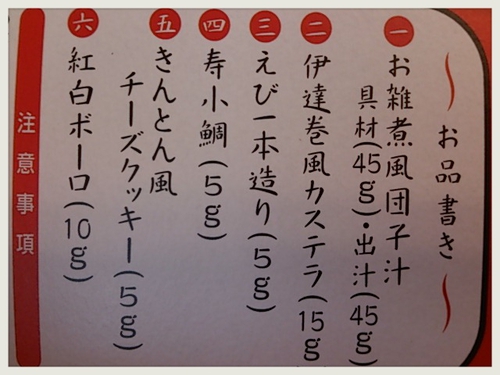 お品書き
一 お雑煮風団子汁
具材(45g)・出汁(45g)
二 伊達巻風カステラ(15g
三 えび一本造り(5g)
四 寿小鯛(5g)
五 きんとん風
チーズクッキー(5g)
六 紅白ボーロ(10g)
注意事項